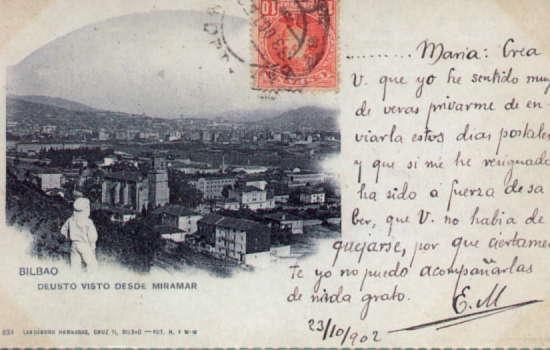 ........ María: Crea
V. que yo he sentido muy
de veras privarme de en
viarla estos dias postales
y que si me he resignado
ha sido á fuerza de sa
ber, que V. no habia de
quejarse, por que ciertamen
te yo no puedo acompañarlas
de nada grato.
E. M
23/10/902
BILBAO
DEUSTO VISTO DESDE MIRAMAR
LANDÁBURU HERMANAS, CRUZ 11, BILBAO
10 10